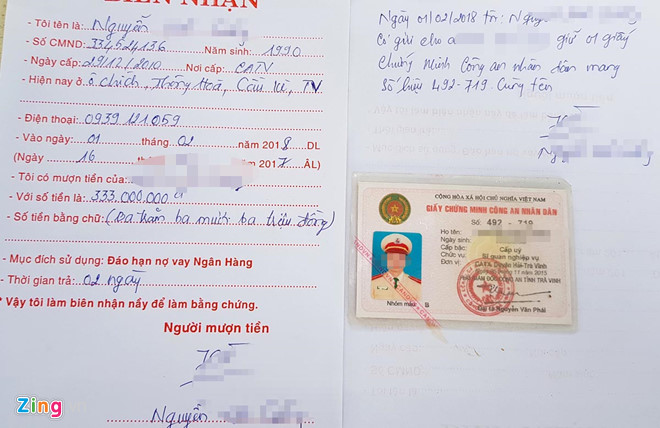 BIÊN NHẬN
- Tôi tên là: Nguyễn
- Số CMND: 334524136 Năm sinh: 1990
- Ngày cấp: 29/12/2010 Nơi cấp: CATV
- Hiện nay ở ô chích, Thông Hoà, Cầu Kè, TV
- Điện thoại: 0939 121 059
- Vào ngày: 01 tháng 02 năm 2018 DL
(Ngày 16 2017 ÂL)
- Tôi có mượn tiền của:
- Với số tiền là: 333.000.000đ
- Số tiền bằng chữ: (Ba trăm ba mươi ba triệu đồng)
- Mục đích sử dụng: Đáo hạn nợ vay Ngân Hàng
- Thời gian trả: 02 ngày
* Vậy tôi làm biên nhận nầy để làm bằng chứng.
Người mượn tiền
Nguyễn
Ngày 01/02/2018 tn: Nguyễn
Có gửi cho giữ 01 giấy
Chứng Minh Công an nhân dân mang
Số hiệu 492-719. Cùng tên
CỘNG HÒA XÃ HỘI CHỦ NGHĨA VIỆT NAM
GIẤY CHỨNG MINH CÔNG AN NHÂN DÂN
Số: 492 - 719
Họ tên:
Ngày sinh:
Cấp bậc: Cấp uý
Chức vụ: Sĩ quan nghiệp vụ
Đơn vị: CATX Duyên Hải-Trà Vinh
11 năm 2013
PHÓ GIÁM ĐỐC CÔNG AN TỈNH TRÀ VINH
Nhóm máu
Đại tá Nguyễn Văn Phái
Zing